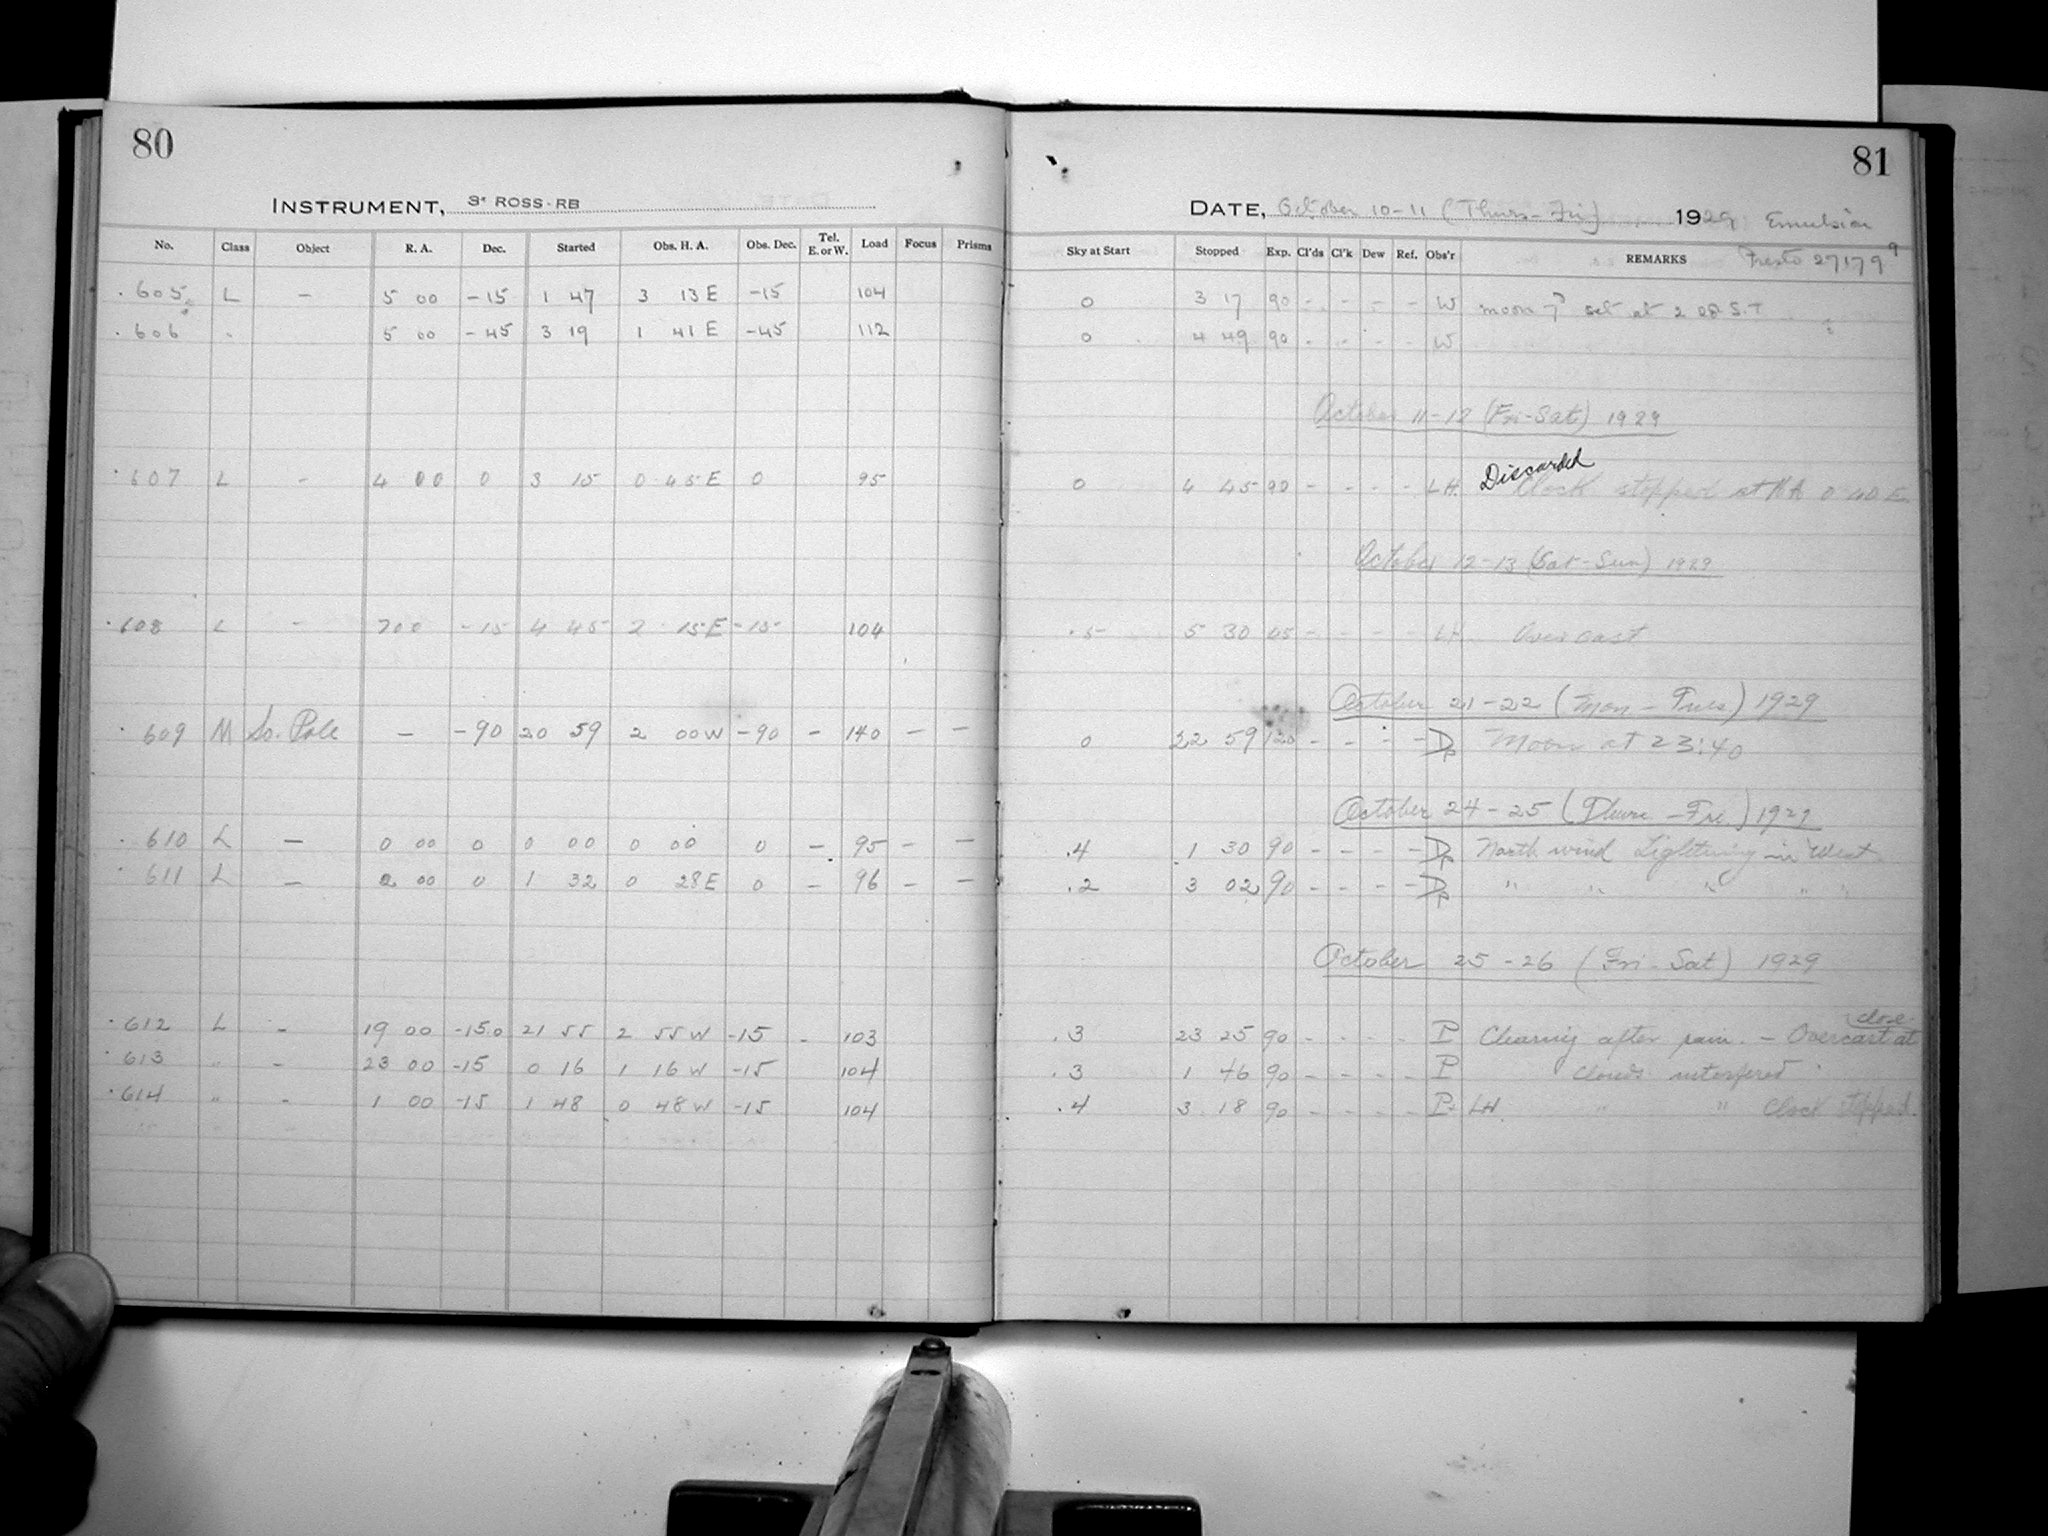 80
INSTRUMENT, 3" ROSS-RB
No. Class Object R. A. Dec. Started Obs. H. A. Obs. Dec. Tel. E. or W. Load Focus Prisms
605 L — 5 00 -15 1 47 3 13 E -15 104
606 " 5 00 -45 3 19 1 41 E -45 112
607 L - 4 00 0 3 15 0 45 E 0 95
608 L - 7 00 -15 4 45 2 15 E -15 104
609 M So. Pole — -90 20 59 2 00 W -90 - 140 - -
610 L — 0 00 0 0 00 0 00 0 - 95 - -
611 L — 2 00 0 1 32 0 28 E 0 - 96 - -
612 L - 19 00 -15.0 21 55 2 55 W -15 - 103
613 " - 23 00 -15 0 16 1 16 W -15 104
614 " - 1 00 -15 1 48 0 48 W -15 104
81
DATE, October 10-11 (Thurs-Fri) 1929 Emulsion
Presto 27179
Sky at Start Stopped Exp. Cl'ds Cl'k Dew Ref. Obs'r REMARKS
0 3 17 90 - - - - W moon set at 2 08 S.T
0 4 49 90 - - - - W
October 11-12 (Fri-Sat) 1929
0 4 45 90 - - - - LH. Discarded Clock stopped at HA 0 40 E
October 12-13 (Sat-Sun) 1929
.5 5 30 45 - - - - LH. Overcast
October 21-22 (Mon-Tues) 1929
0 22 59 120 - - - - Moon at 23:40
October 24-25 (Thurs-Fri) 1929
.4 1 30 90 - - - - North wind Lightning in West
.2 3 02 90 - - - - " " " " "
October 25-26 (Fri-Sat) 1929
.3 23 25 90 - - - - P Clearing after rain. - Overcast at close.
.3 1 46 90 - - - - P Clouds interfered
.4 3 18 90 - - - - P. LH. " " Clock stopped.